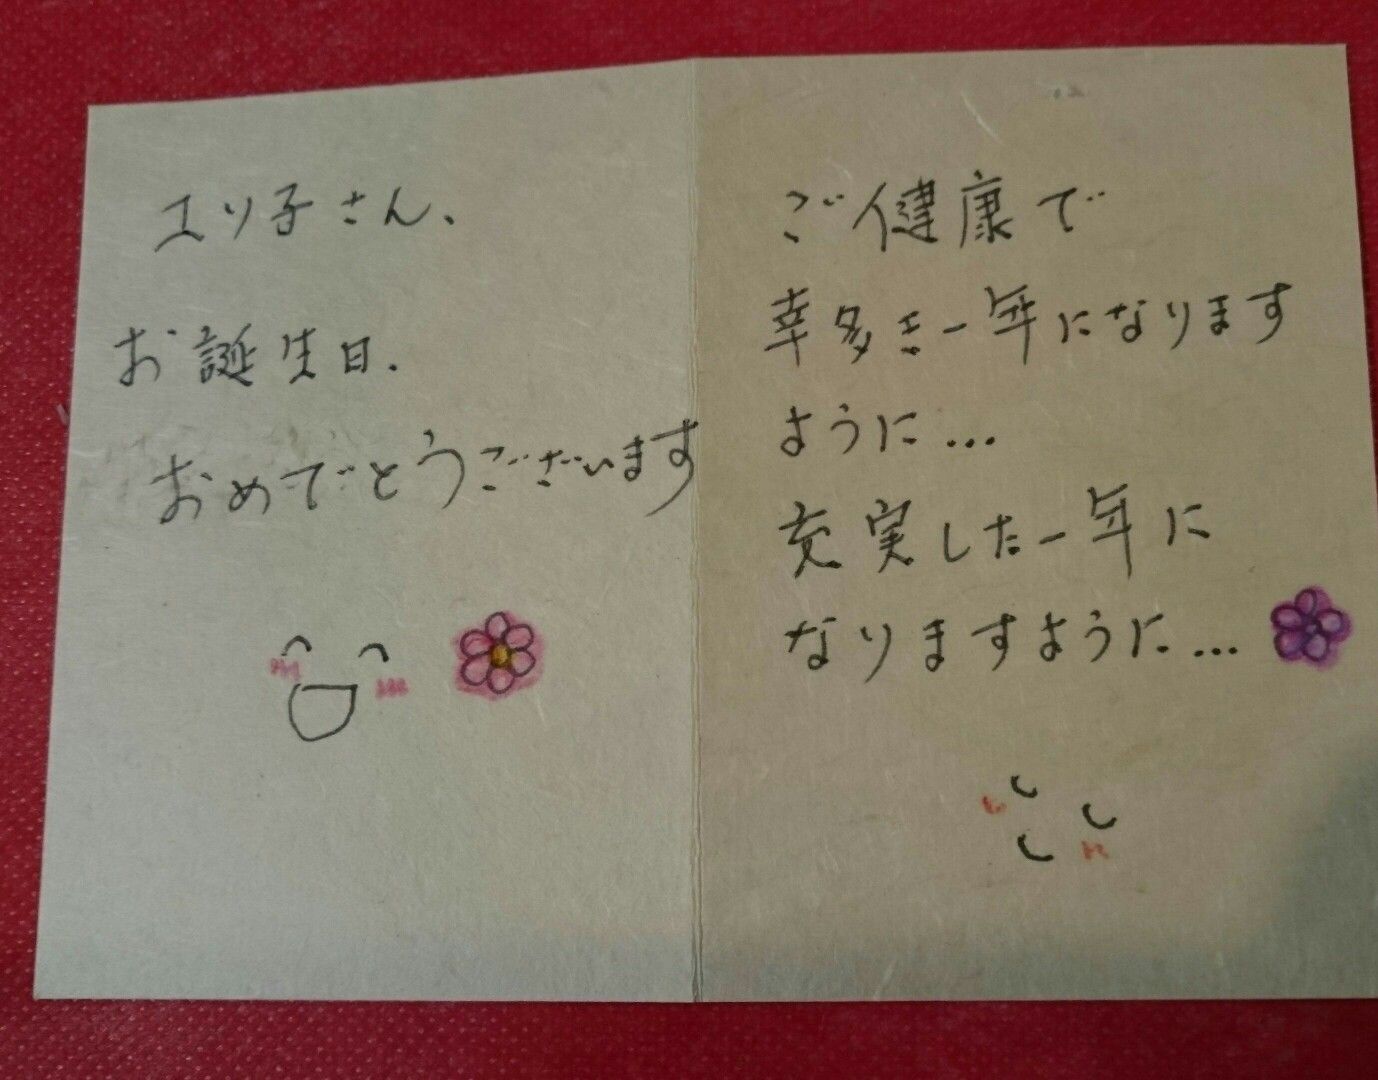 ユリ子さん、
お誕生日、
おめでとうございます
ご健康で
幸多き一年になります
ように…
充実した一年に
なりますように…